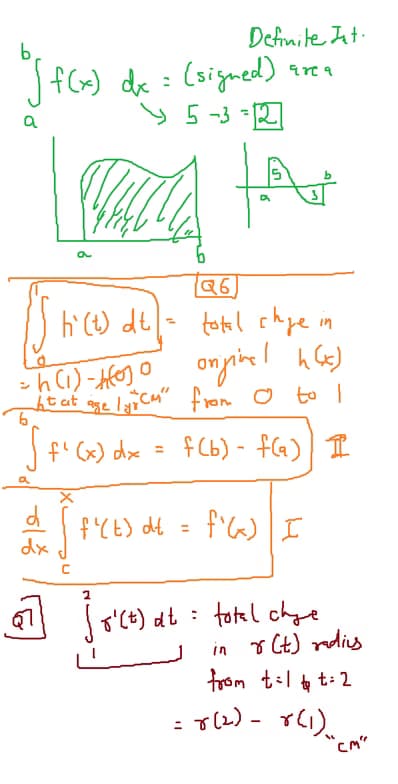 Definite Int.
b
∫ f(x) dx = (signed) area
a
→ 5 - 3 = 2
5
a
b
3
a
b
Q6
1
∫ h'(t) dt = total chge in
0
original h(x)
from 0 to 1
= h(1) - h(0) 0
ht at age 1 yr "cm"
b
∫ f'(x) dx = f(b) - f(a) II
a
x
d/dx ∫ f'(t) dt = f'(x) I
c
Q7
2
∫ r'(t) dt = total chge
1
in r(t) radius
from t=1 to t=2
= r(2) - r(1)
"cm"